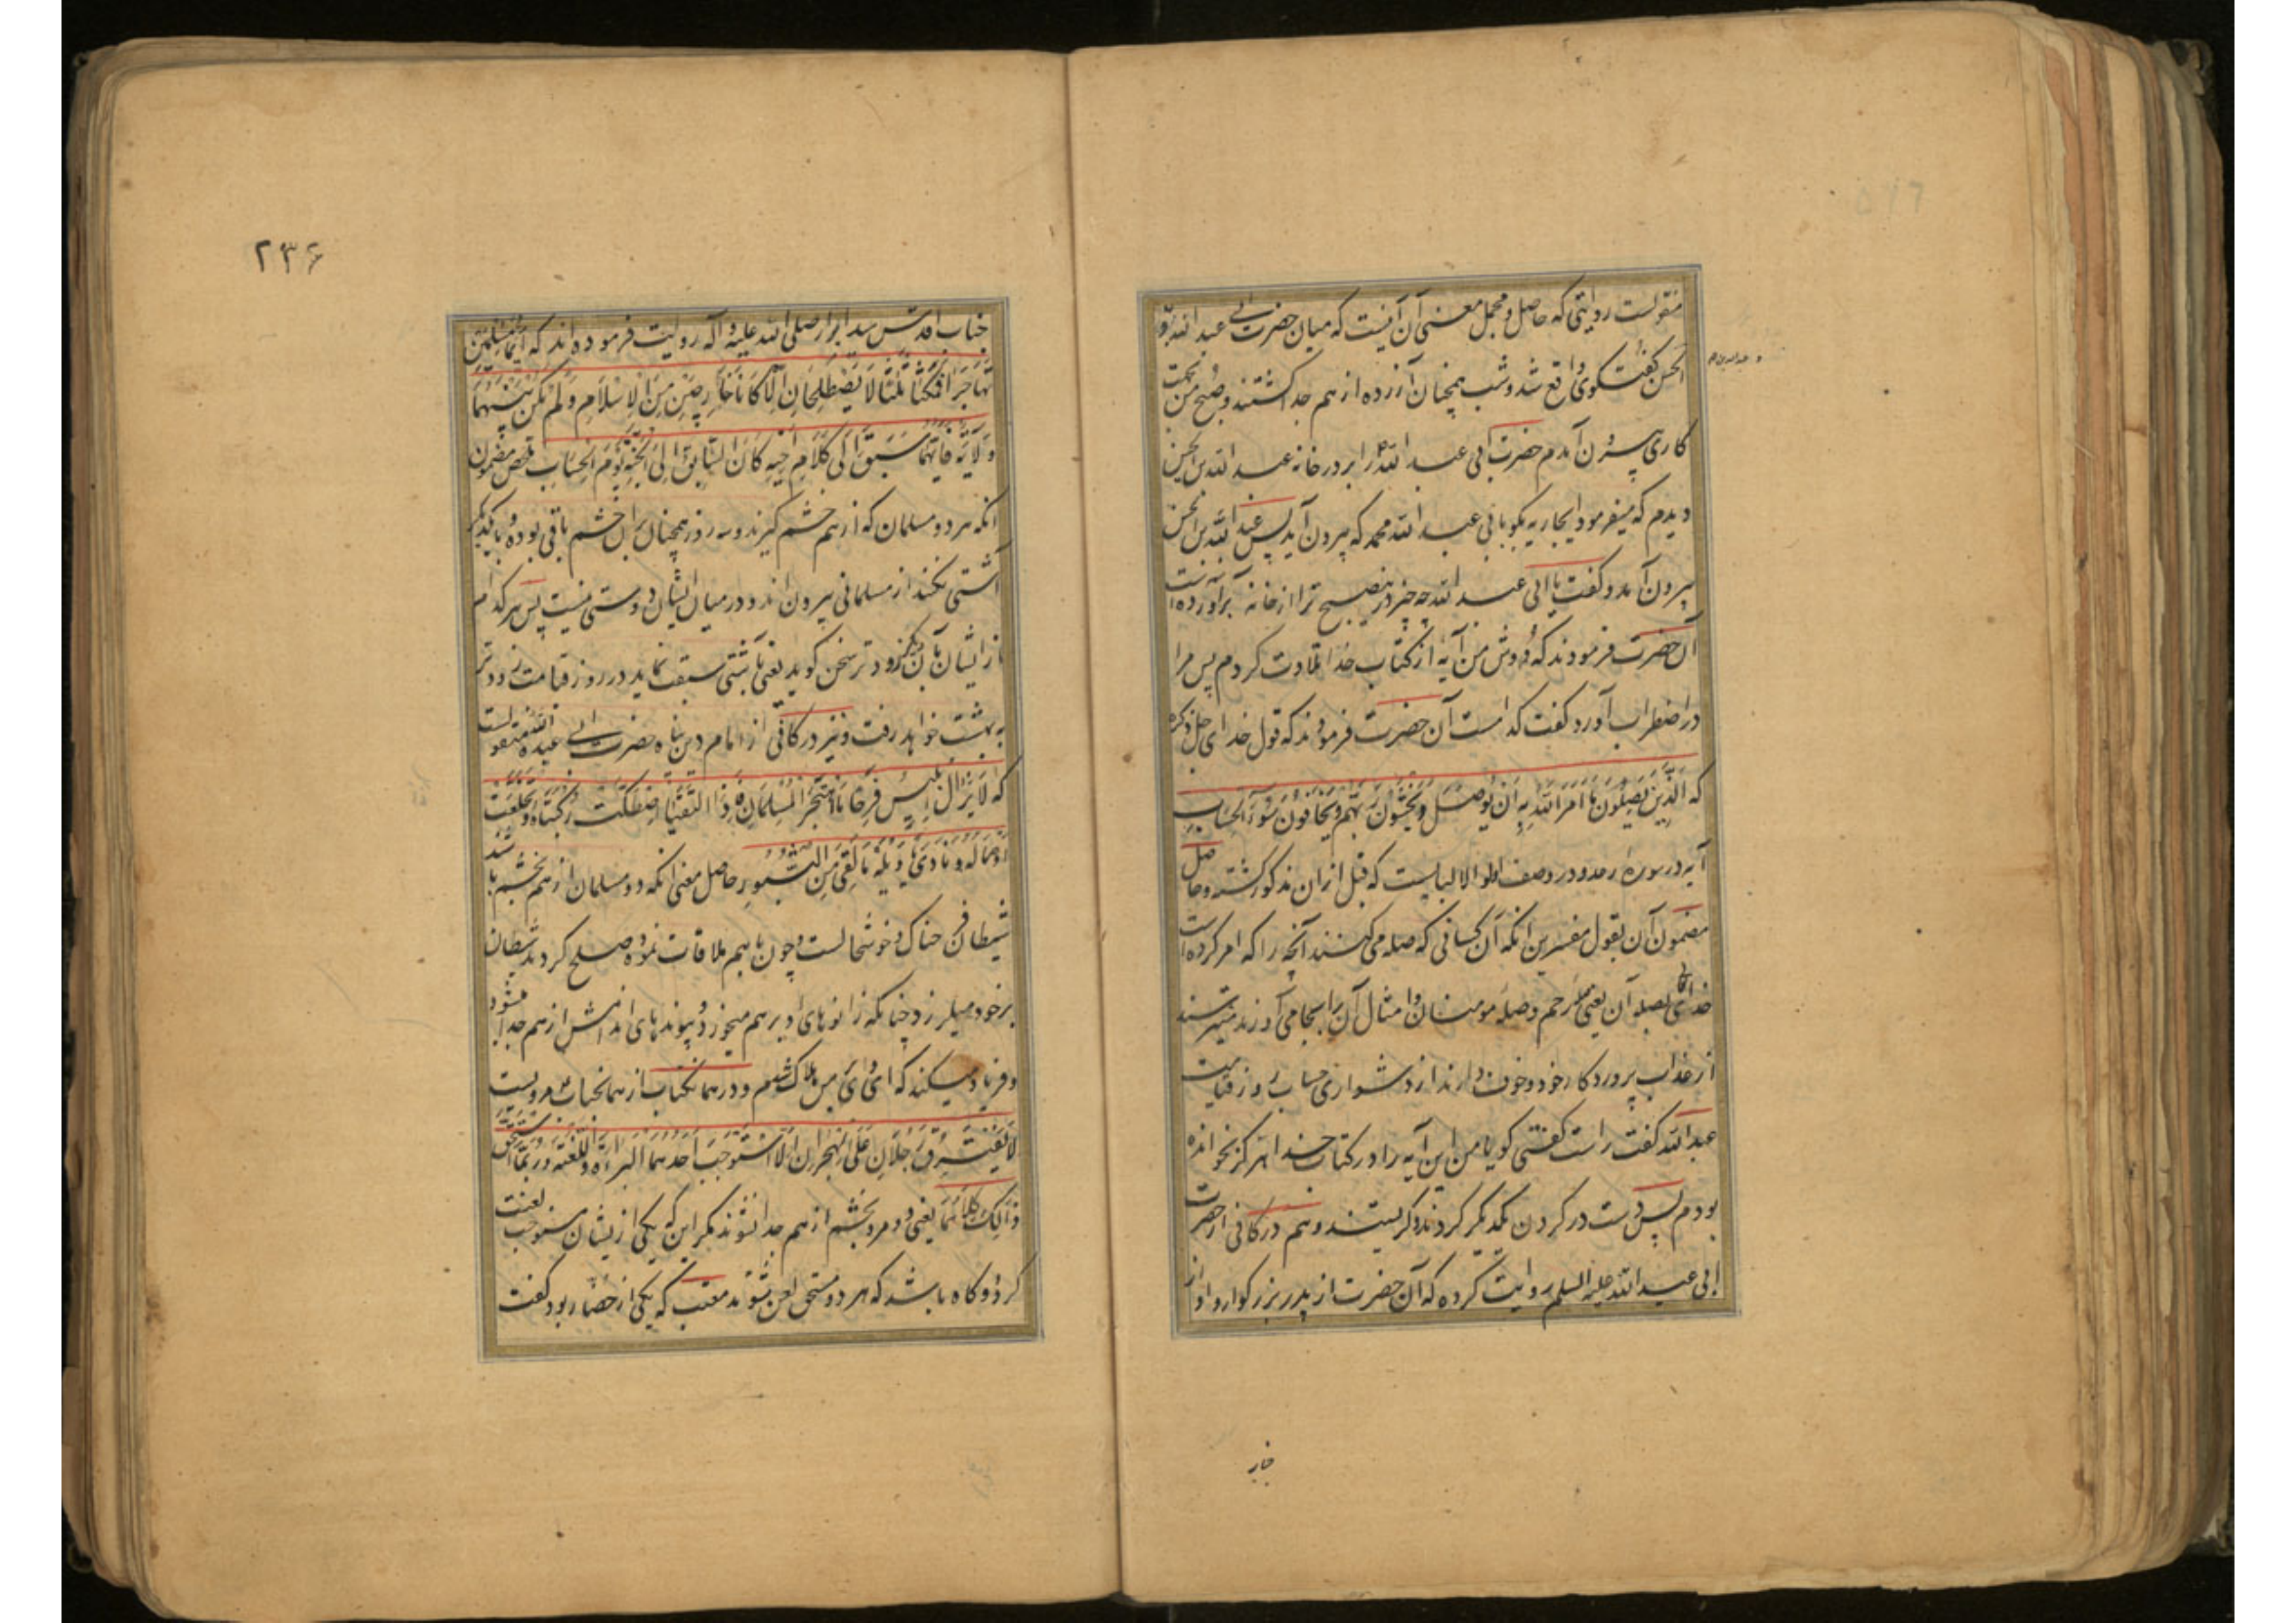 منقولست روایتی که حاصل و مجمل معنی آن آنیست که میان حضرت ابی عبد الله و
و عبد الله بن
الحسن گفت و گوی واقع شد و شب همچنان آزرده از هم جدا گشتند و صبح من بجهت
کاری بیرون آمدم حضرت ابی عبد الله را بر در خانه عبد الله بن الحسن
دیدم که میفرمود ایجاریه بگو بابی عبد الله محمد که بیرون آید پس عبد الله بن الحسن
بیرون آمد و گفت یا ابی عبد الله چه چیز درینصبح ترا از خانه برآورده است
آن حضرت فرمودند که دوش من آیهٔ از کتاب خدا تلاوت کردم پس مرا
در اضطراب آورد گفت کدامست آن حضرت فرمودند که قول خدای جل ذکره
که الَّذِینَ یَصِلُونَ مَا أَمَرَ اللَّهُ بِهِ أَنْ یُوصَلَ وَیَخْشَوْنَ رَبَّهُمْ وَیَخَافُونَ سُوءَ الْحِسَابِ
آیه در سورهٔ رعد و در وصف اولو الالبابست که قبل ازان مذکور گشته و حاصل
مضمون آن بقول مفسرین انکه آن کسانی که صله می کنند آنچه را که امر کرده است
خدای تعالی بصله آن یعنی صله رحم و صله مومنان و امثال آن را بجا می آورند و میترسند
از عذاب پروردکار خود و خوف دارند از دشواری حساب روز قیامت
عبد الله گفت راست گفتی گویا من این آیه را در کتاب خدا هرگز نخوانده
بودم پس دست در گردن یکدیگر کردند و گریستند و هم در کافی از حضرت
ابی عبد الله علیه السلم روایت کرده که آن حضرت از پدر بزرگوار و او از
جناب
۲۳۶
جناب اقدس سید ابرار صلی الله علیه و آله روایت فرموده اند که أَیُّمَا مُسْلِمَیْنِ
تَهَاجَرَا فَمَکَثَا ثَلٰثًا لَا یَصْطَلِحَانِ إِلَّا کَانَا خَارِجَیْنِ مِنَ الْإِسْلَامِ وَلَمْ یَکُنْ بَیْنَهُمَا
وَلَایَةٌ فَأَیُّهُمَا سَبَقَ إِلَی کَلَامِ أَخِیهِ کَانَ السَّابِقَ إِلَی الْجَنَّةِ یَوْمَ الْحِسَابِ ملخص مضمون
انکه هر دو مسلمان که از هم خشم گیرند و سه روز همچنان بران خشم باقی بوده و با یکدیگر
آشتی نکنند از مسلمانی بیرون اند و در میان ایشان دوستی نیست پس هر کدام
از ایشان بآن دیگر زودتر سخن گوید یعنی بآشتی سبقت نماید در روز قیامت زودتر
به بهشت خواهد رفت و نیز در کافی از امام دین پناه حضرت ابی عبد الله منقولست
که لَا یَزَالُ إِبْلِیسُ فَرِحًا مَا اهْتَجَرَ الْمُسْلِمَانِ فَإِذَا الْتَقَیَا اصْطَکَّتْ رُکْبَتَاهُ وَتَخَلَّعَتْ
أَوْصَالُهُ وَنَادَی یَا وَیْلَهُ مَا لَقِیَ مِنَ الثُّبُورِ حاصل معنی انکه دو مسلمان از هم بخشم باشند
شیطان فرحناک و خوشحالست و چون باهم ملاقات نموده صلح کردند شیطان
برخود میلرزد چنانکه زانوهای او برهم میخورد و پیوندهای اندامش از هم جدا میشود
و فریاد میکند که ای وای من هلاک شدم و در همانکتاب از همانجناب مرویست
لَا یَفْتَرِقُ رَجُلَانِ عَلَی الْهِجْرَانِ إِلَّا اسْتَوْجَبَ أَحَدُهُمَا الْبَرَاءَةَ وَاللَّعْنَةَ وَرُبَّمَا اسْتَحَقَّ
ذَٰلِکَ کِلَاهُمَا یعنی دو مرد بخشم از هم جدا نشوند مگر این که یکی از یشان مستوجب لعنت
گردد و گاه باشد که هر دو مستحق لعن شوند معتب که یکی از حضار بود گفت